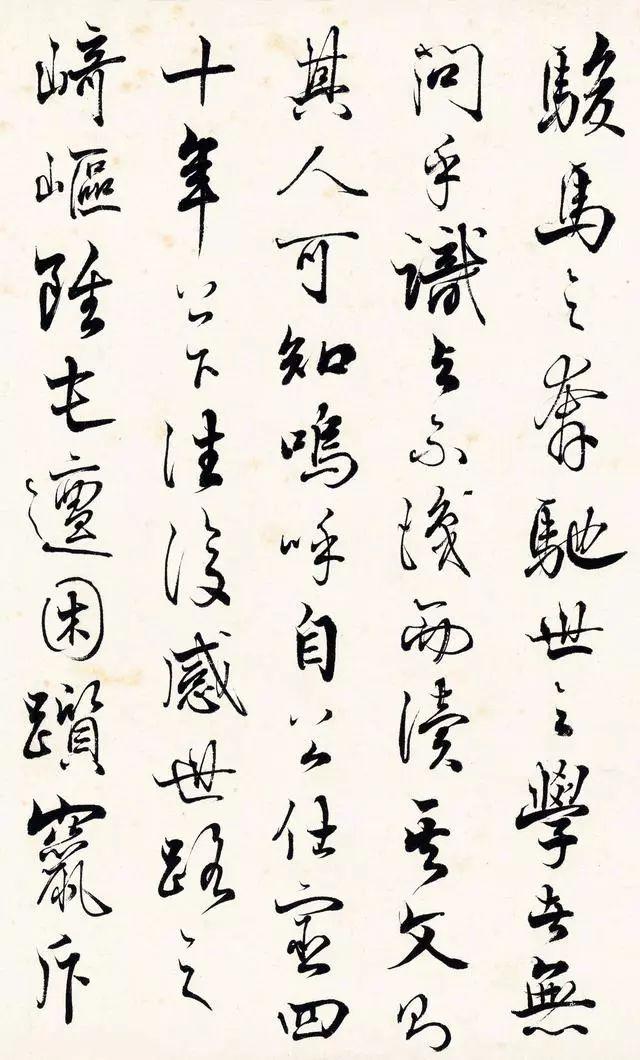 駿馬之奔馳世之學者無
問乎識与不識而讀其文則
其人可知嗚呼自公仕宦四
十年上下往復感世路之
崎嶇雖屯邅困躓竄斥